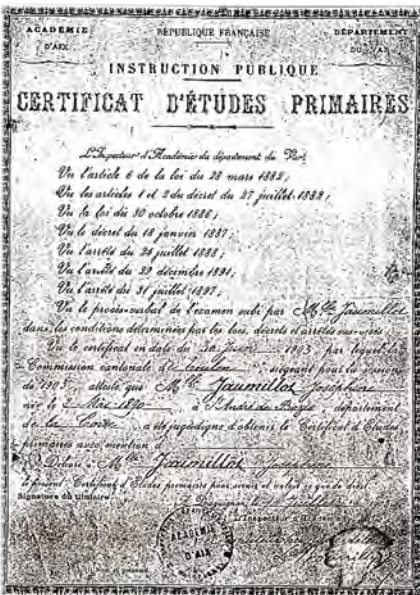 ACADÉMIE
D'AIX
RÉPUBLIQUE FRANÇAISE
DÉPARTEMENT
DU VAR
INSTRUCTION PUBLIQUE
CERTIFICAT D'ÉTUDES PRIMAIRES
L'Inspecteur d'Académie du département du Var,
Vu l'article 6 de la loi du 28 mars 1882;
Vu les articles 1 et 2 du décret du 27 juillet 1882;
Vu la loi du 30 octobre 1886;
Vu le décret du 18 janvier 1887;
Vu l'arrêté du 24 juillet 1888;
Vu l'arrêté du 29 décembre 1891;
Vu l'arrêté du 31 juillet 1897;
Vu le procès-verbal de l'examen subi par Mlle Jaumillot
dans les conditions déterminées par les lois, décrets et arrêtés sus-visés;
Vu le certificat en date du 30 Juin 1903 par lequel la
Commission cantonale de Toulon siégeant pour la session
de 1903 atteste que Mlle Jaumillot Joséphine
née le Mai 1890 à St André de département
de la Corse, a été jugée digne d'obtenir le Certificat d'Études
primaires avec mention d
Délivre à Mlle Jaumillot Joséphine
le présent Certificat d'Études primaires pour servir et valoir ce que de droit.
Signature du titulaire:
Draguignan, le
L'Inspecteur d'Académie,
ACADÉMIE
D'AIX